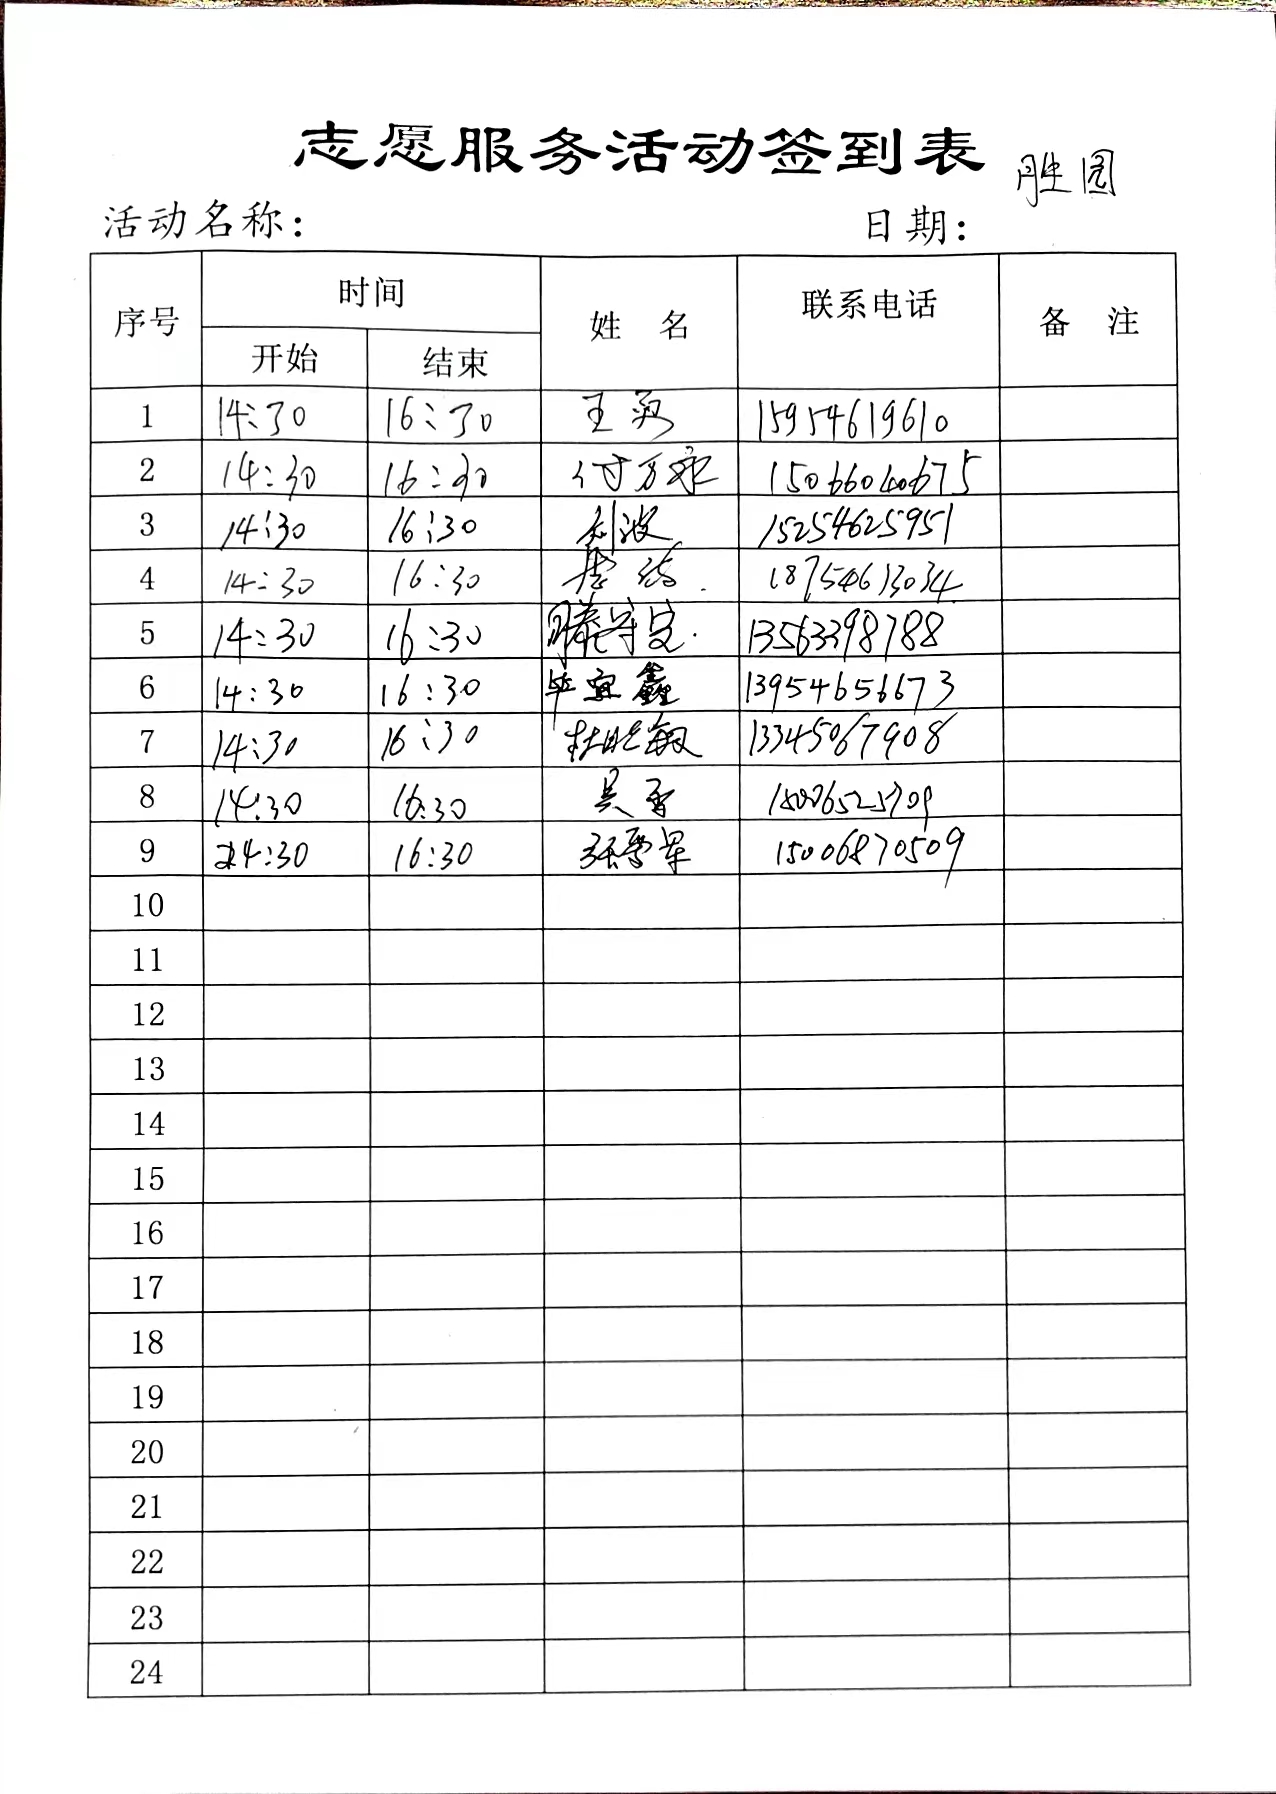 志愿服务活动签到表
胜园
活动名称： 日期：
序号 时间 姓 名 联系电话 备 注
开始 结束
1 14:30 16:30 王 15954619610
2 14:30 16:30 付万永 15066040675
3 14:30 16:30 刘波 15254625951
4 14:30 16:30 18754613034
5 14:30 16:30 滕守 13563398788
6 14:30 16:30 毕宜鑫 13954656673
7 14:30 16:30 杜晓敏 13345067908
8 14:30 16:30 吴香
9 14:30 16:30 张雪军 15006870509
10
11
12
13
14
15
16
17
18
19
20
21
22
23
24